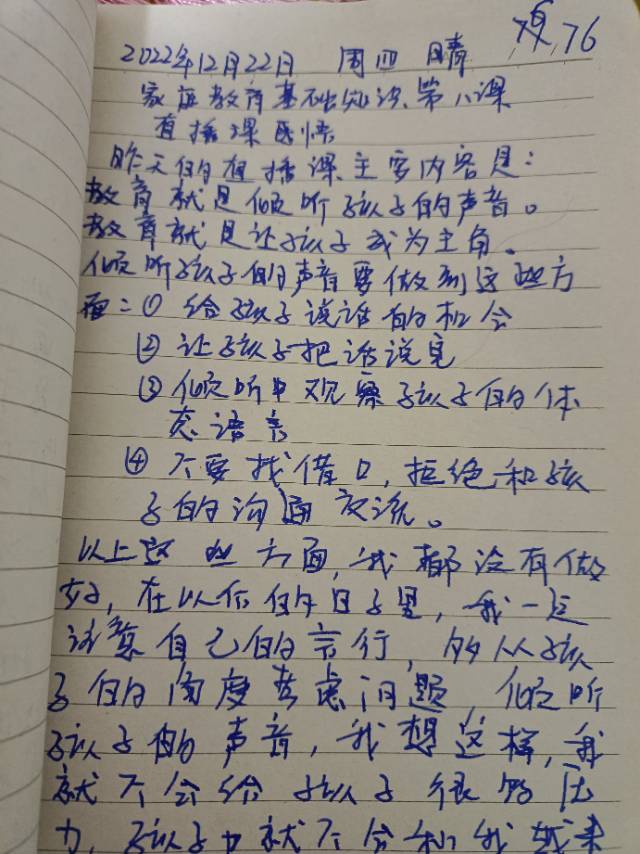 76
2022年12月22日 周四 晴
家庭教育基础知识第八课
直播课感悟
昨天的直播课主要内容是：
教育就是倾听孩子的声音。
教育就是让孩子成为主角。
倾听孩子的声音要做到这些方
面：① 给孩子说话的机会
② 让孩子把话说完
③ 倾听中观察孩子的体
态语言
④ 不要找借口，拒绝和孩
子的沟通交流。
以上这些方面，我都没有做
好，在以后的日子里，我一定
调整自己的言行，多从孩
子的角度考虑问题，倾听
孩子的声音，我想这样，我
就不会给孩子很多压
力，孩子也就不会和我越来